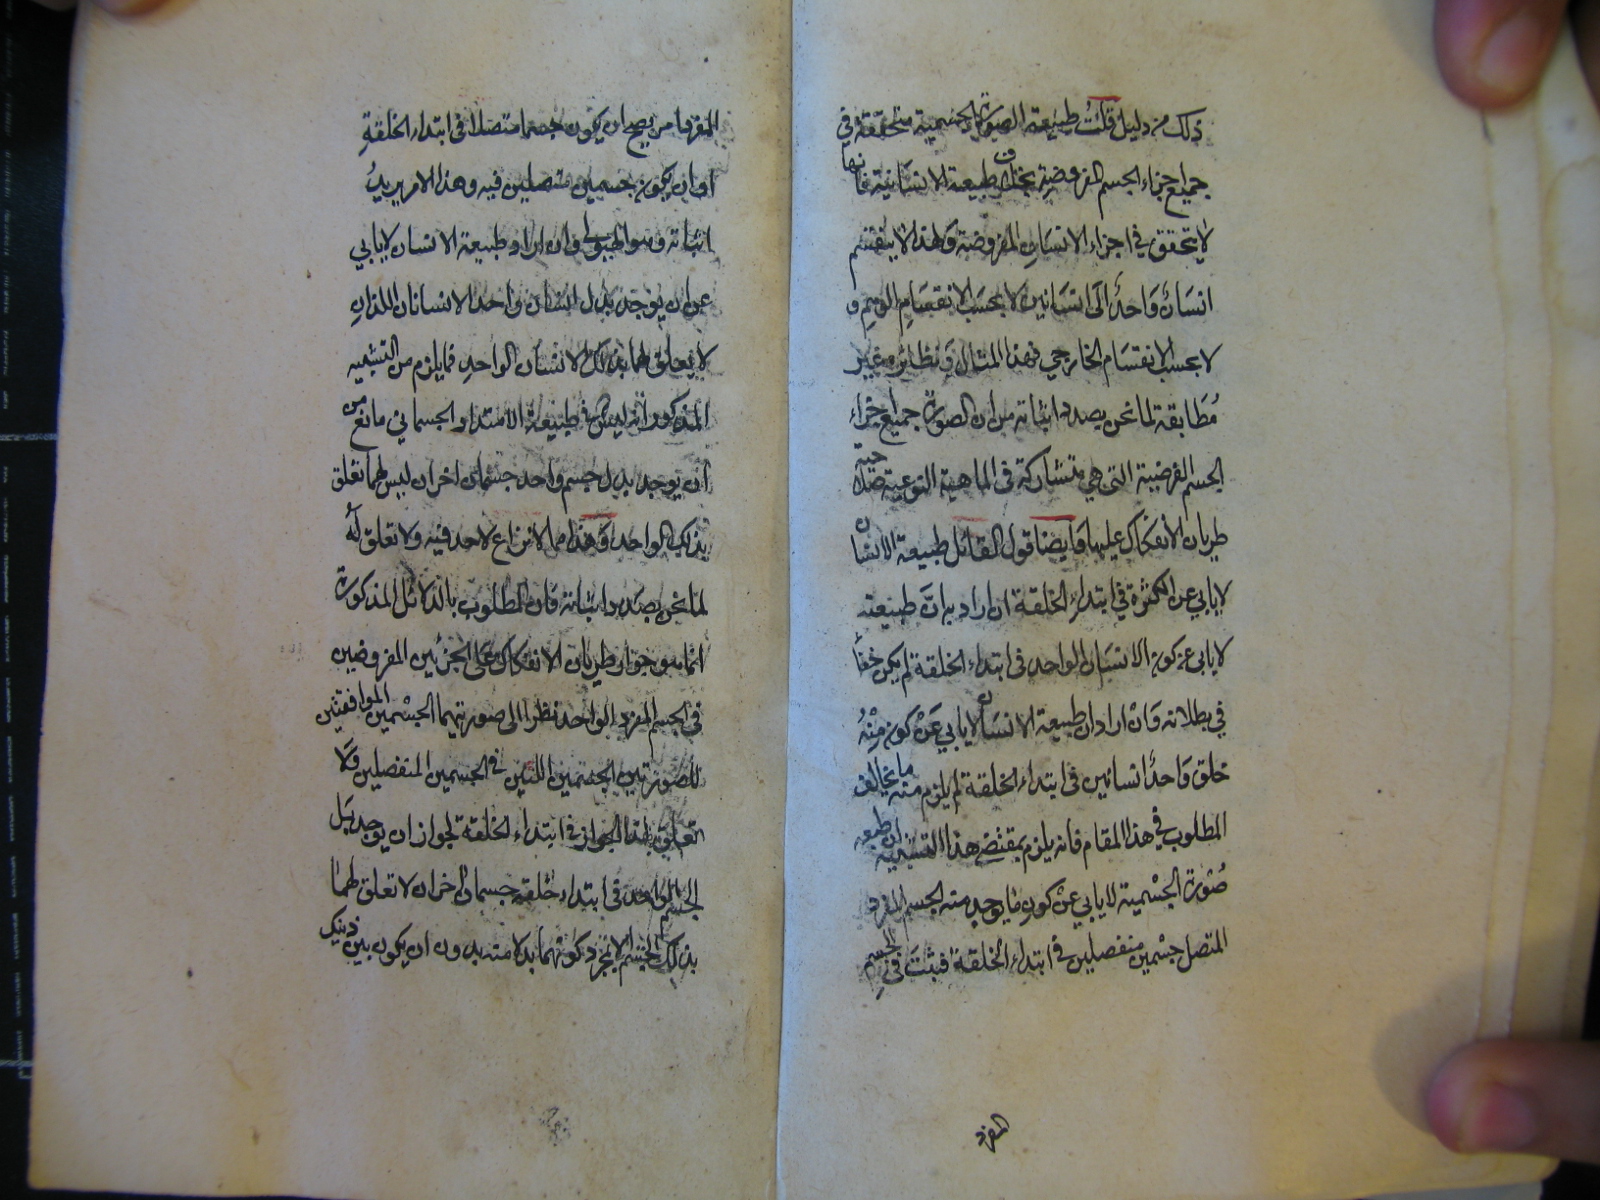 ذلك من دليل قلت طبيعة الصورة الجسمية متحققة في
جميع اجزاء الجسم المفروضة بخلاف طبيعة الانسانية فانها
لا تتحقق في اجزاء الانسان المفروضة ولهذا لا ينقسم
انسان واحد الى انسانين لا بحسب الانقسام الوهمي و
لا بحسب الانقسام الخارجي فهذا المثال ونظائره غير
مطابقة لما نحن بصدد اثباته من ان الصورة جميع اجزاء
الجسم الفرضية التي هي متشاركة في الماهية النوعية
طريان الانفكاك عليها وايضا قول القائل طبيعة الانسان
لا يابى عن الكثرة في ابتداء الخلقة ان اراد به ان طبيعته
لا يابى عن كون الانسان الواحد في ابتداء الخلقة لم يكن خفأ
في بطلانه وان اراد ان طبيعة الانسان لا يابى عن كون منه
خلق واحدا انسانين في ابتداء الخلقة لم يلزم منه ما يخالف
المطلوب في هذا المقام فانه يلزم بمقتضى هذا التشبيه ان طبيعة
صورة الجسمية لا يابى عن كون ما يوجد منه الجسم المفرد
المتصل جسمين منفصلين في ابتداء الخلقة فثبت في الجسم
المفرد
المفرد امر يصح ان يكون جسما متصلا في ابتداء الخلقة
او ان يكون جسمين منفصلين فيه وهذا الامر يريد
اثباته وهو الهيولى وان اراد طبيعة الانسان لا يابى
عن ان يوجد بدل انسان واحد الانسانان اللذان
لا تعلق لهما بذلك الانسان الواحد فما يلزم من التشبيه
المذكور انه ليس في طبيعة الامتداد الجسماني مانع من
ان يوجد بدل جسم واحد جسمان اخران ليس لهما تعلق
بذلك الواحد وهذا مما لا نزاع لاحد فيه ولا تعلق له
لما نحن بصدد اثباته فان المطلوب بالدلائل المذكورة
انما هو جواز طريان الانفكاك على الجزئين المفروضين
في الجسم المفرد الواحد نظرا الى صورتيهما الجسمين الموافقتين
للصورتين الجسميتين اللتين في الجسمين المنفصلين ولا
تعلق بهذا الجواز في ابتداء الخلقة لجواز ان يوجد بدل
الجسم الواحد في ابتداء خلقه جسمان اخران لا تعلق لهما
بذلك الجسم الا بمجرد كونهما بدلا منه بدون ان يكون بين ذينك